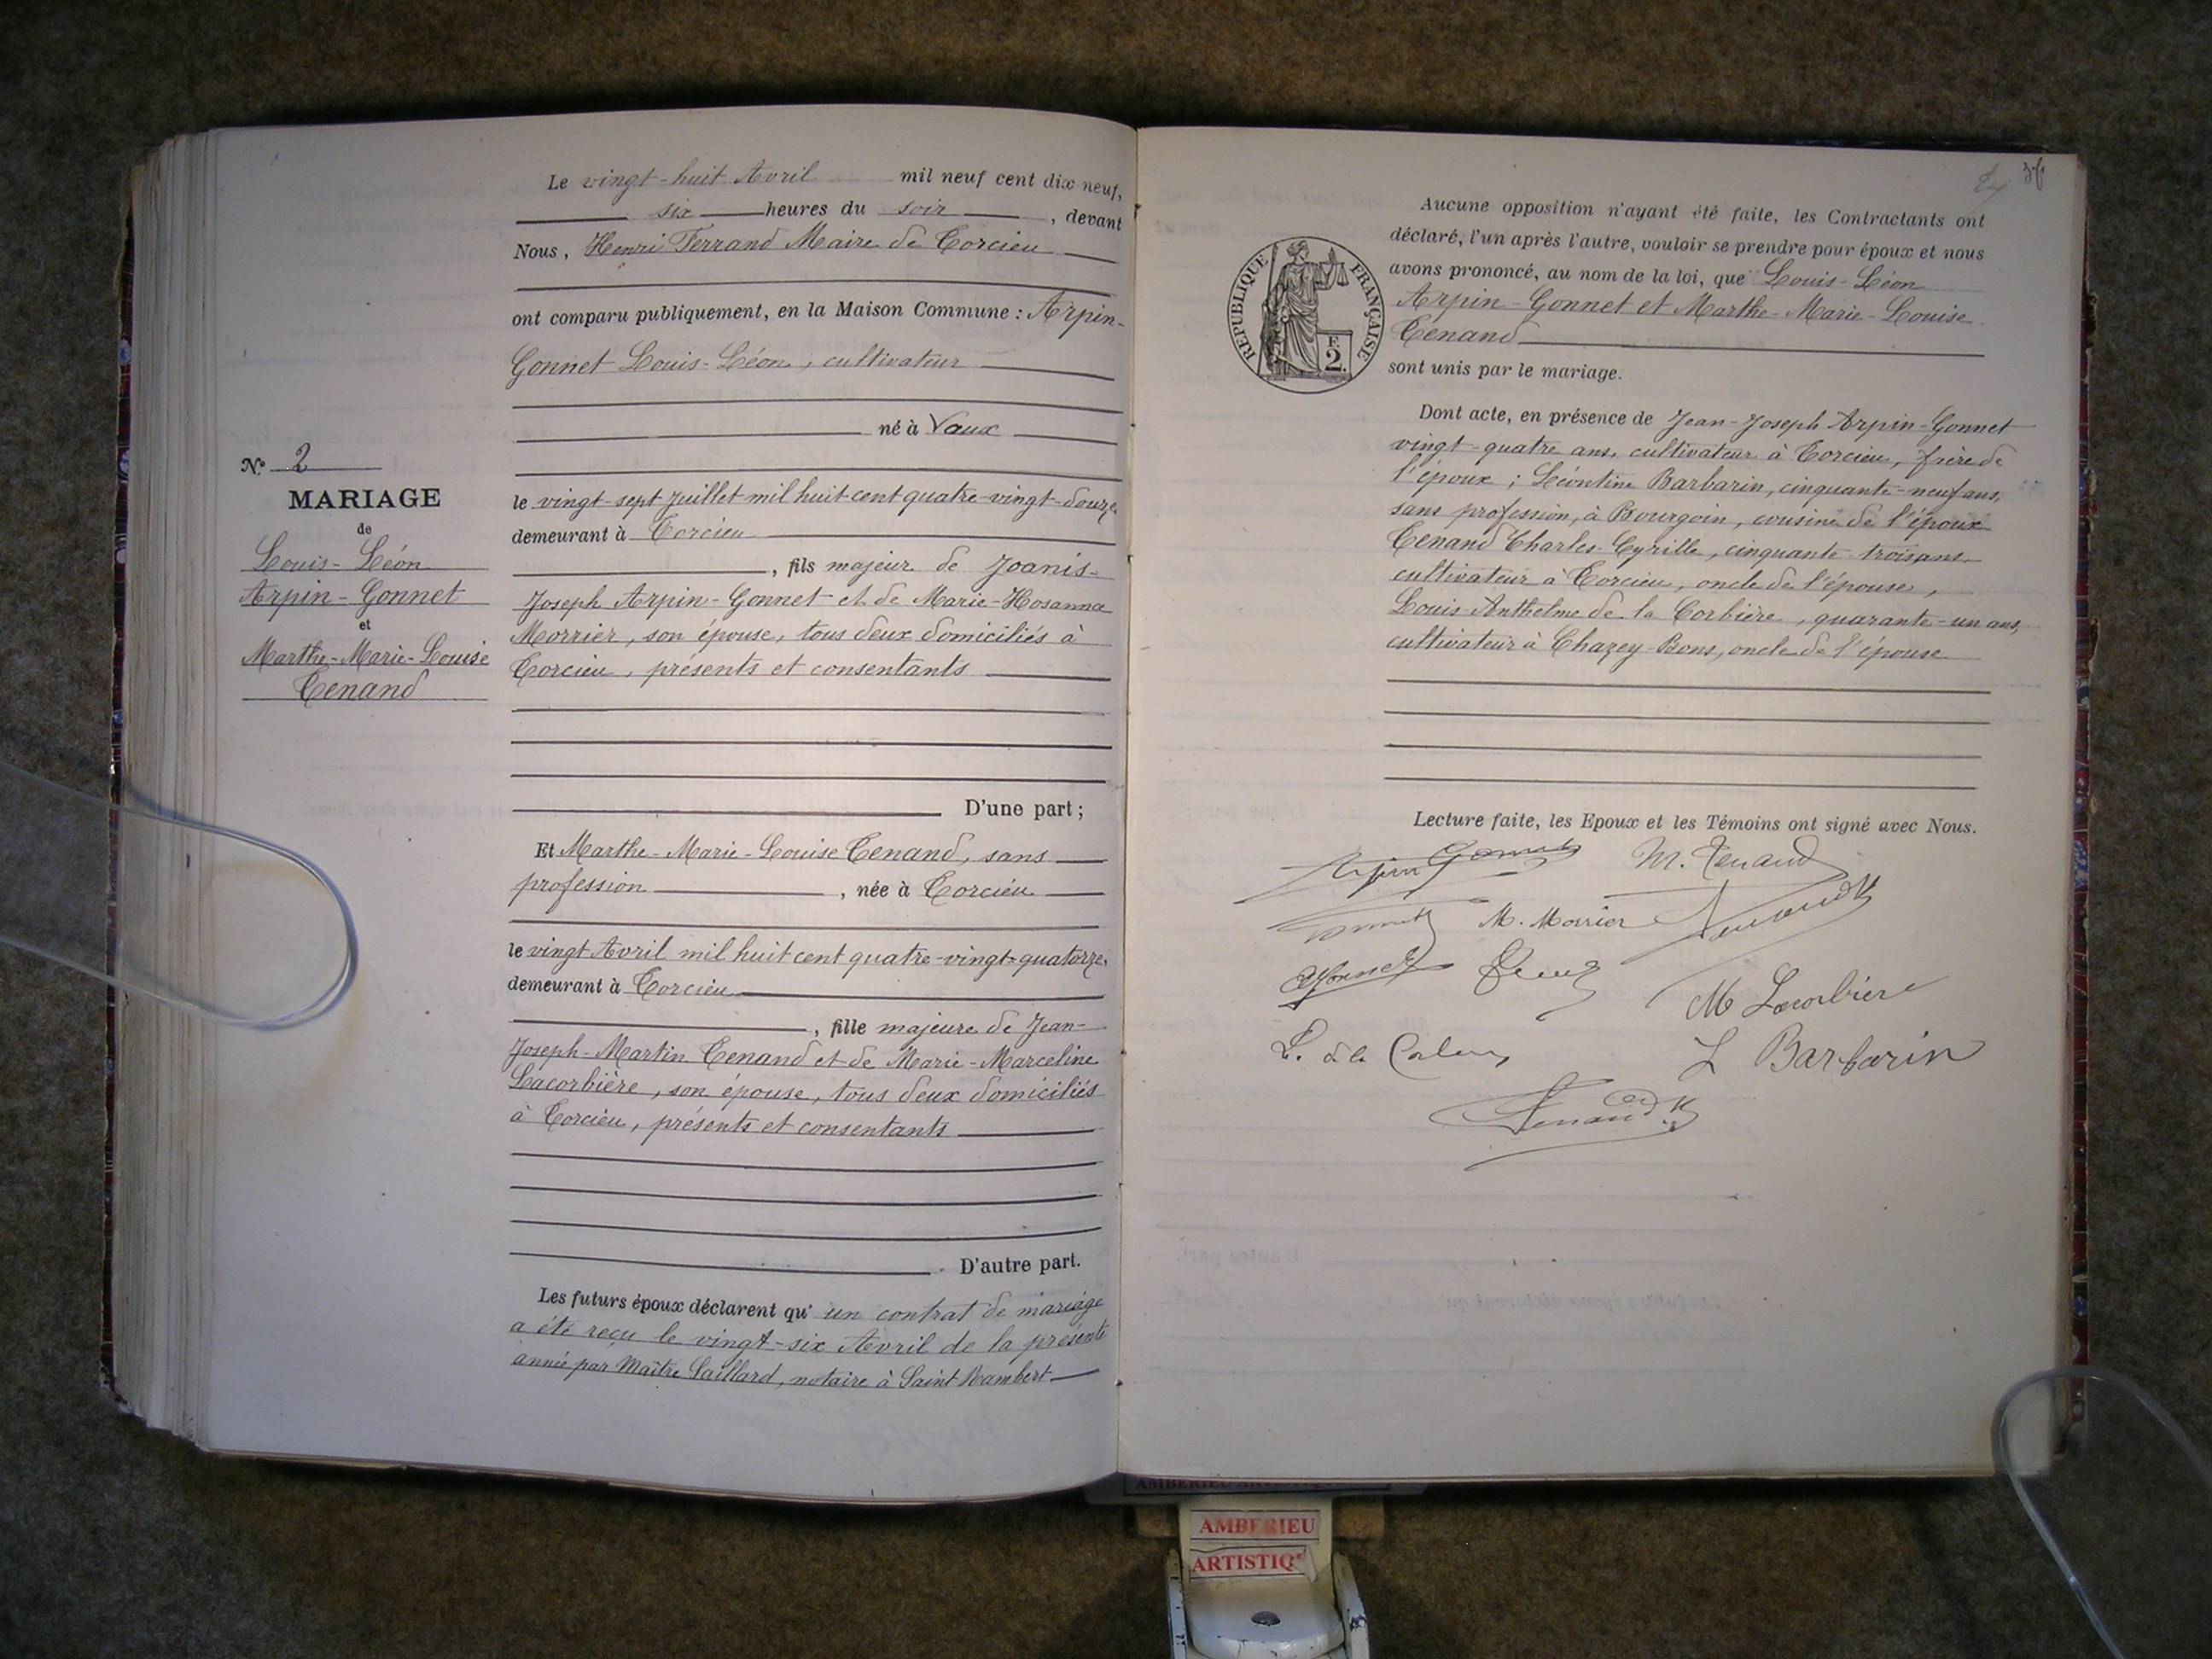 Le vingt-huit Avril mil neuf cent dix neuf,
six heures du soir, devant
Nous, Henri Ferrand Maire de Torcieu
ont comparu publiquement, en la Maison Commune : Arpin-
Gonnet Louis-Léon, cultivateur
né à Vaux
N° 2
MARIAGE
de
Louis-Léon
Arpin-Gonnet
et
Marthe-Marie-Louise
Tenand
le vingt-sept Juillet mil huit cent quatre-vingt-douze
demeurant à Torcieu
, fils majeur de Joanis-
Joseph Arpin-Gonnet et de Marie-Hosanna
Morrier, son épouse, tous deux domiciliés à
Torcieu, présents et consentants
D'une part ;
Et Marthe-Marie-Louise Tenand, sans
profession, née à Torcieu
le vingt Avril mil huit cent quatre-vingt-quatorze,
demeurant à Torcieu
, fille majeure de Jean-
Joseph-Martin Tenand et de Marie-Marceline
Lacorbière, son épouse, tous deux domiciliés
à Torcieu, présents et consentants
D'autre part.
Les futurs époux déclarent qu' un contrat de mariage
a été reçu le vingt-six Avril de la présente
année par Maître Saillard, notaire à Saint Rambert
Aucune opposition n'ayant été faite, les Contractants ont
déclaré, l'un après l'autre, vouloir se prendre pour époux et nous
avons prononcé, au nom de la loi, que Louis-Léon
Arpin-Gonnet et Marthe-Marie-Louise
Tenand
sont unis par le mariage.
RÉPUBLIQUE FRANÇAISE
F.
2.
Dont acte, en présence de Jean-Joseph Arpin-Gonnet
vingt-quatre ans, cultivateur à Torcieu, frère de
l'époux ; Léontine Barbarin, cinquante-neuf ans,
sans profession, à Bourgoin, cousine de l'époux
Tenand Charles-Cyrille, cinquante-trois ans,
cultivateur à Torcieu, oncle de l'épouse,
Louis-Anthelme de la Corbière, quarante-un ans,
cultivateur à Chazey-Bons, oncle de l'épouse
Lecture faite, les Epoux et les Témoins ont signé avec Nous.
Arpin Gonnet M. Tenand
Gonnet M. Morrier Tenand
M Lacorbière
L. de la
L Barbarin
AMBERIEU ARTISTIQ
AMBERIEU
ARTISTIQ